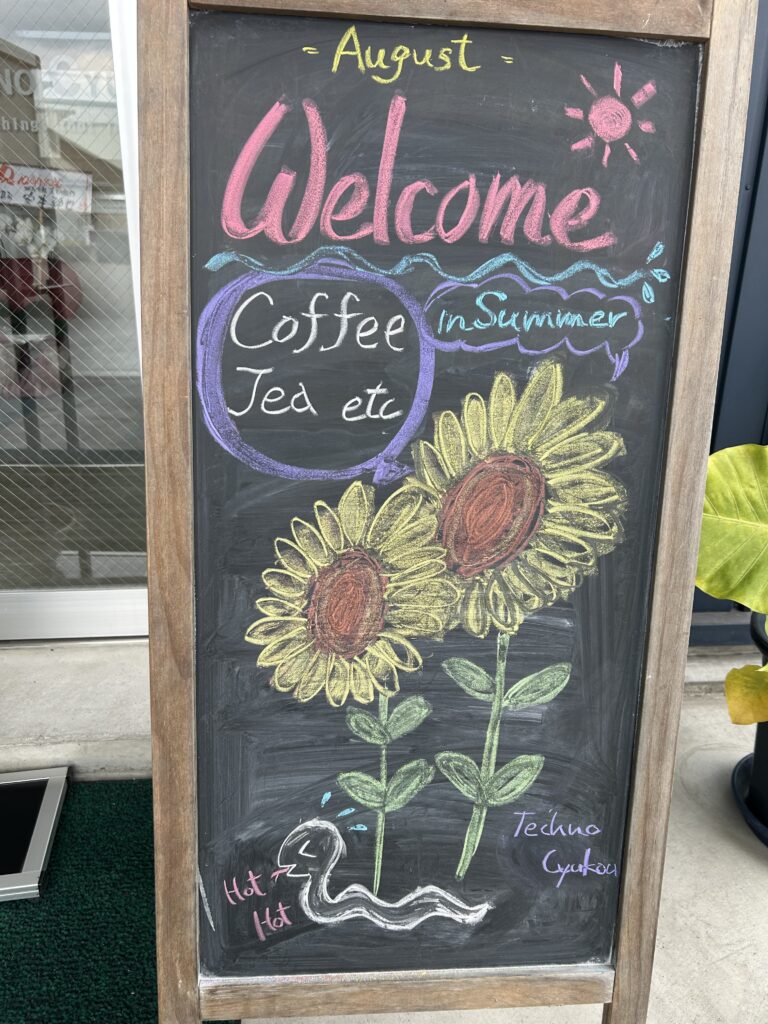 = August =
Welcome
Coffee
Tea etc
in Summer
Techno
Gyukou
Hot
Hot